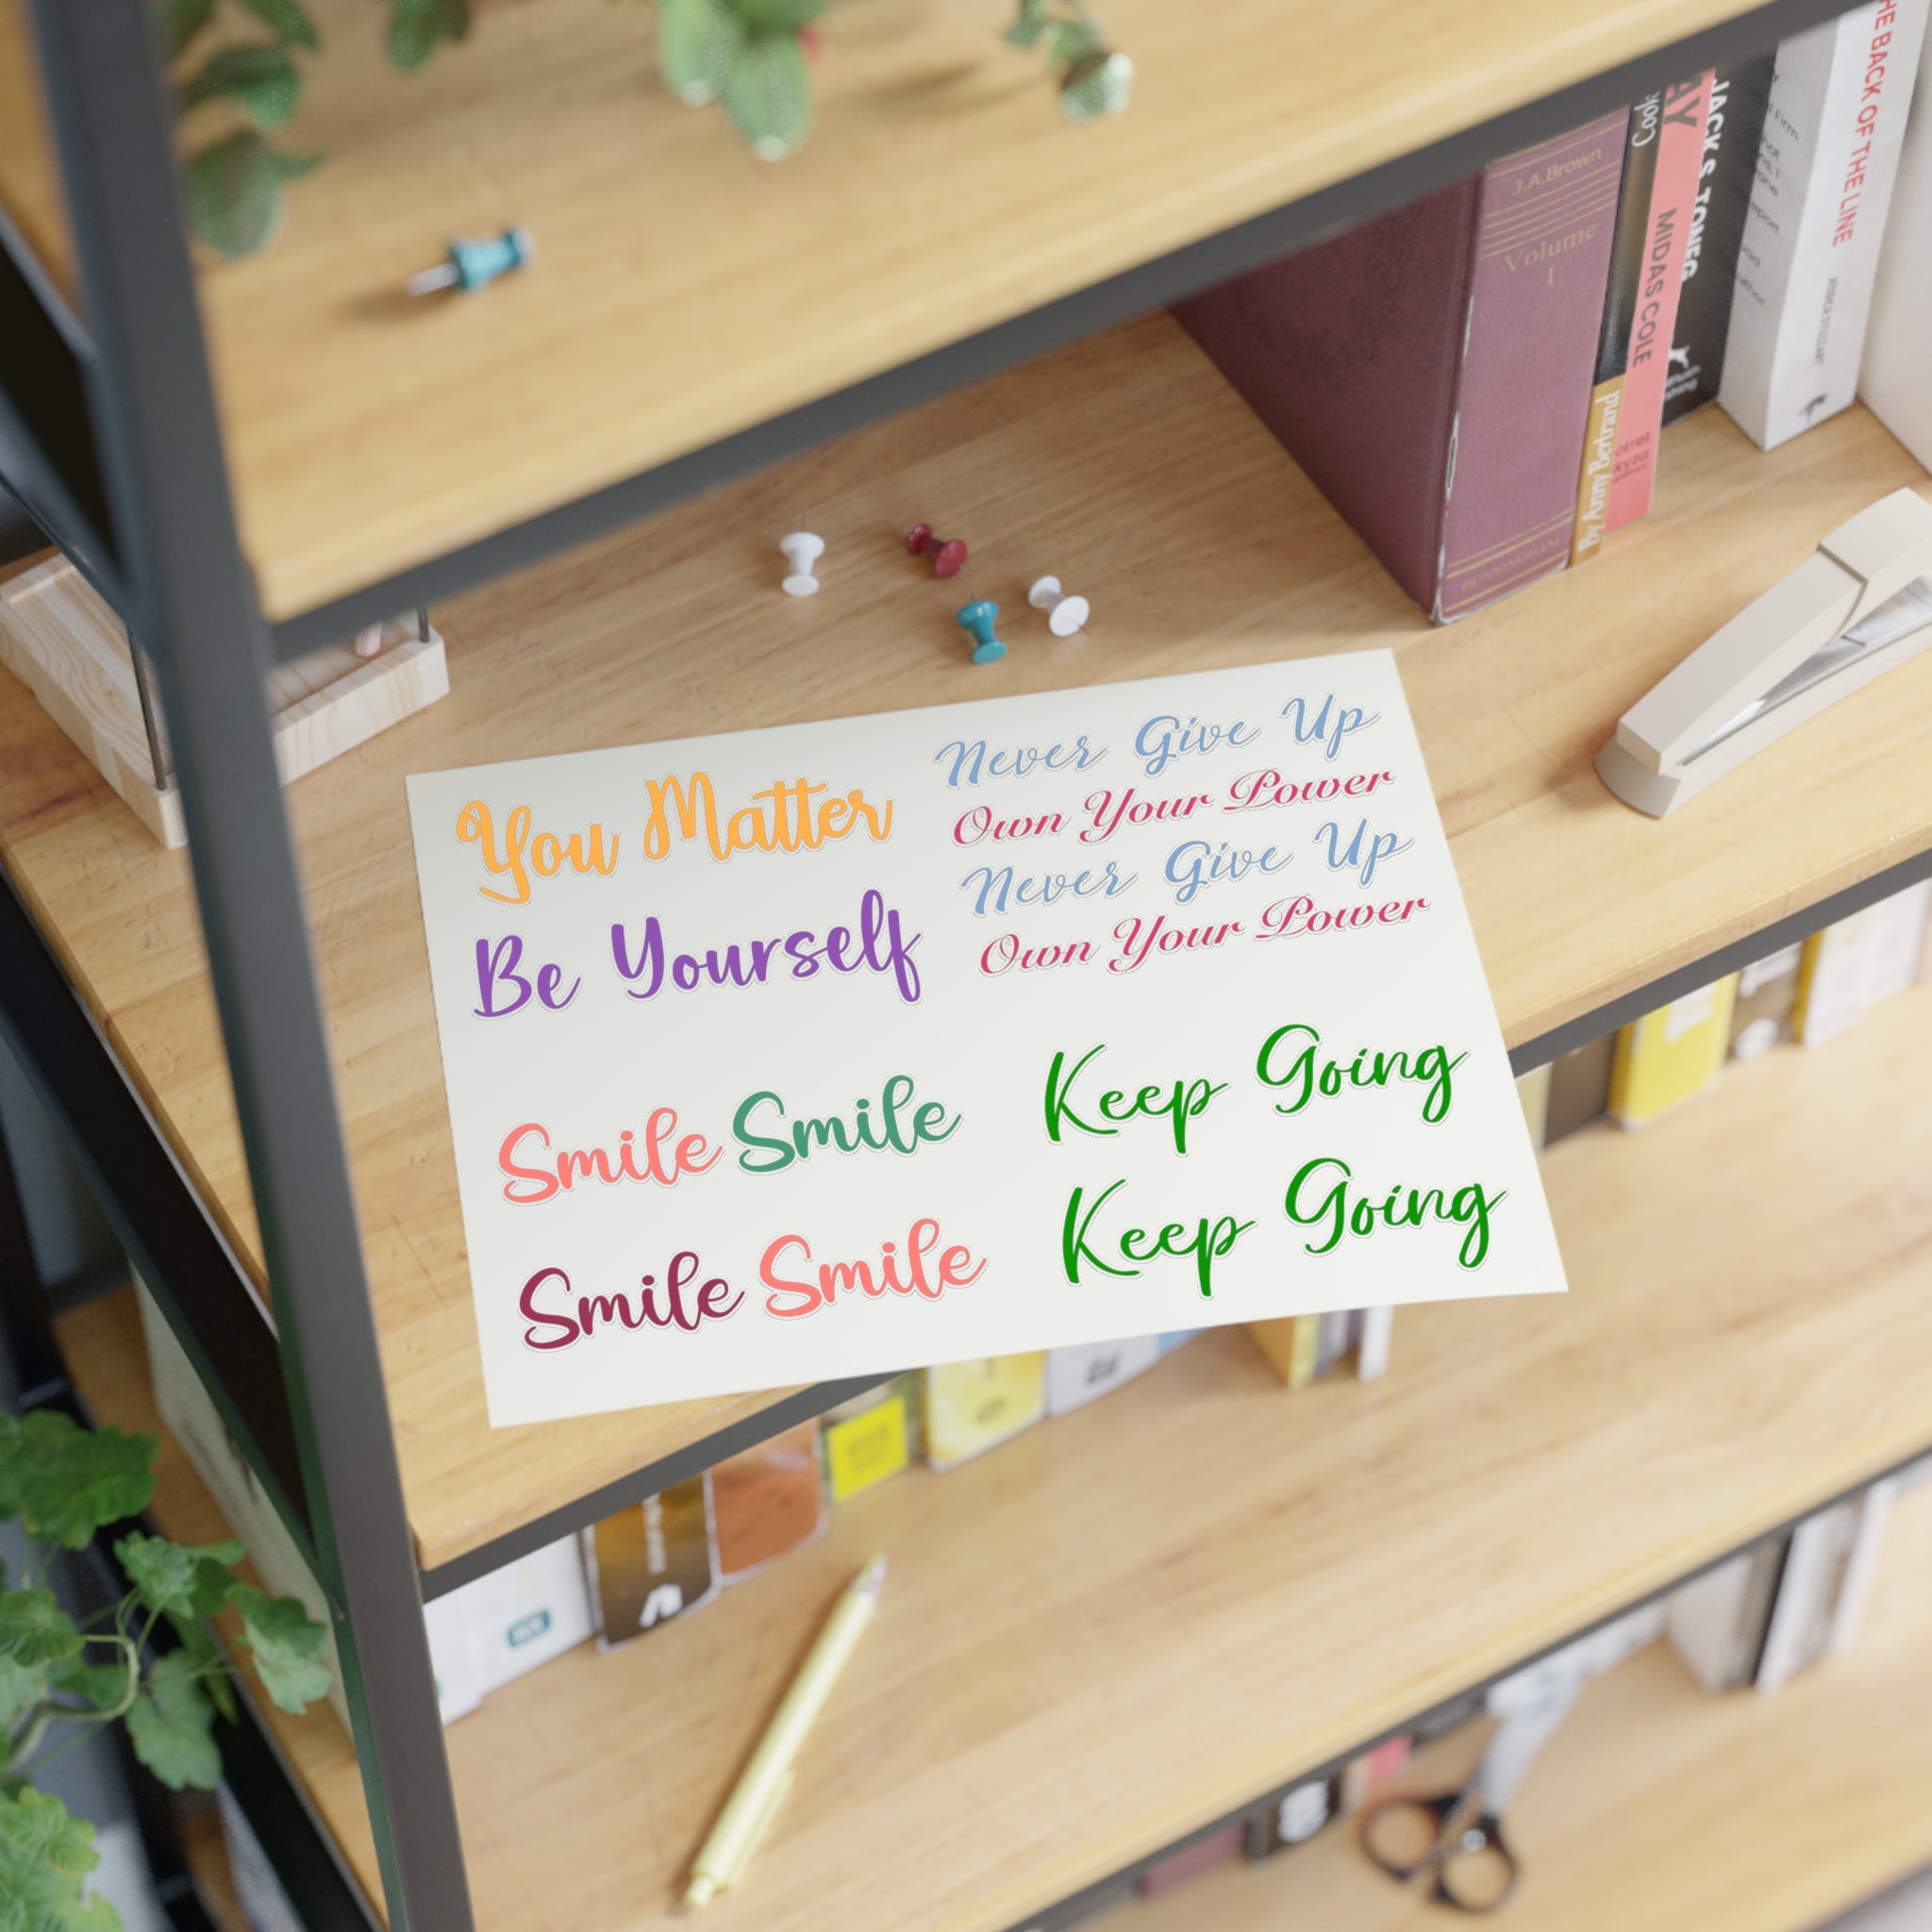 You Matter
Be Yourself
Smile Smile
Smile Smile
Never Give Up
Own Your Power
Never Give Up
Own Your Power
Keep Going
Keep Going
J.A.Brown
Volume
I
DUNNINGHAM
Cook
By Anny Bertrand
AY
MIDAS COLE
JACK S. JONES
HE BACK OF THE LINE